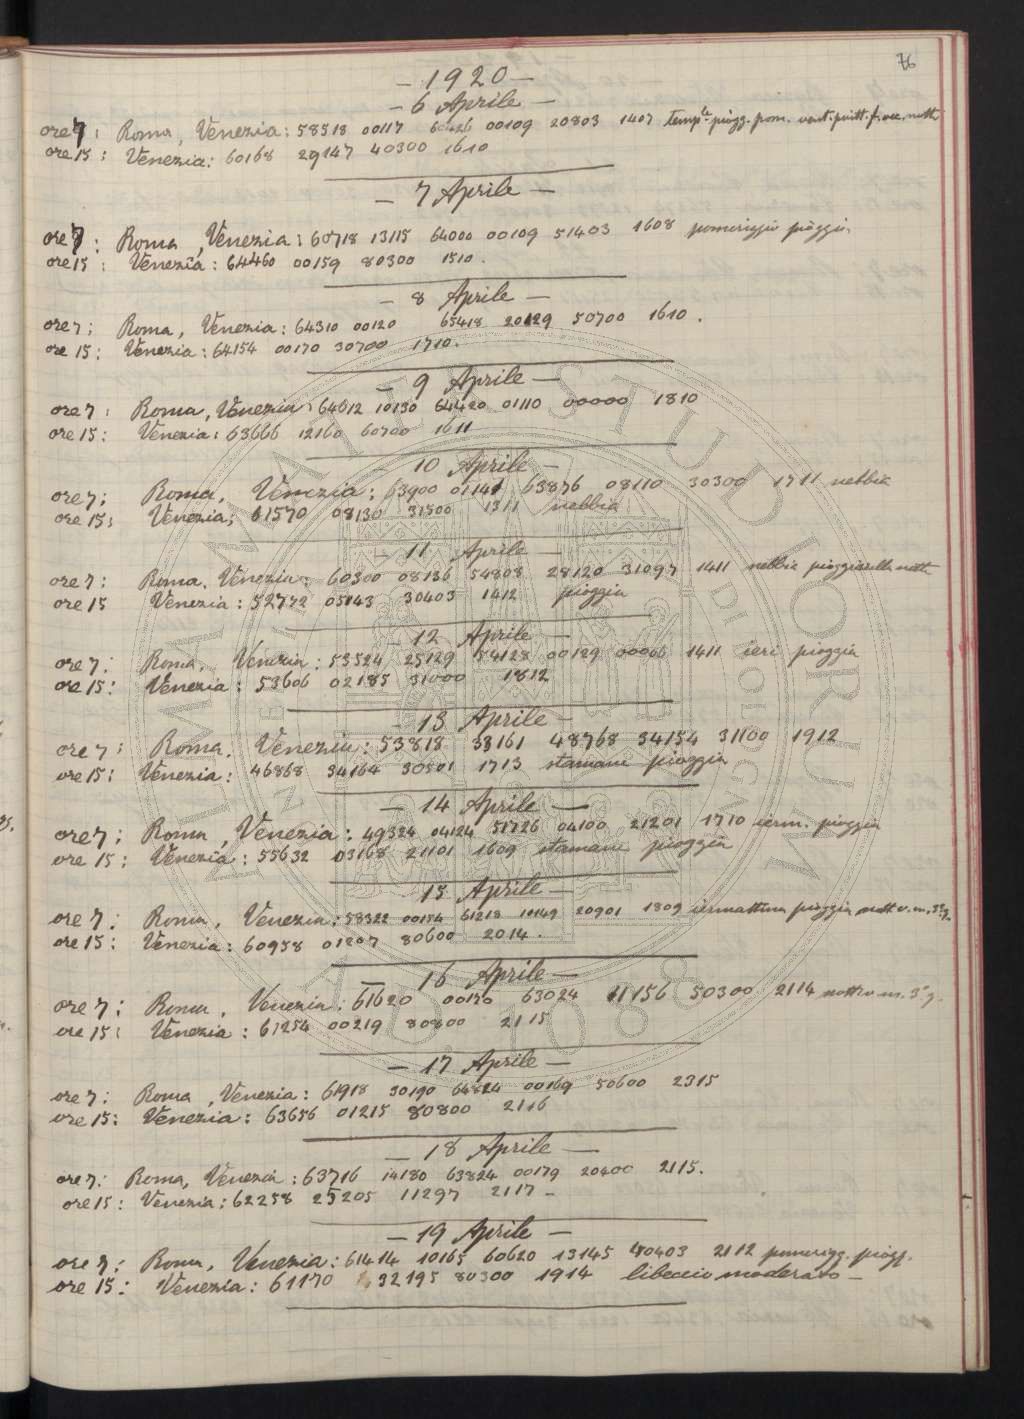 76
— 1920 —
— 6 Aprile —
ore 7: Roma, Venezia: 58518 00117 60426 00109 20803 1407 temp.le piogg. pom.
ore 15: Venezia: 60168 29147 40300 1610
— 7 Aprile —
ore 7: Roma, Venezia: 60718 13115 64000 00109 51403 1608 pomeriggio pioggia
ore 15: Venezia: 64460 00159 80300 1510.
— 8 Aprile —
ore 7: Roma, Venezia: 64310 00120 65418 20129 50700 1610.
ore 15: Venezia: 64154 00170 30700 1710.
— 9 Aprile —
ore 7: Roma, Venezia: 64612 10130 64420 01110 00000 1810
ore 15: Venezia: 63666 12160 60700 1611
— 10 Aprile —
ore 7: Roma, Venezia: 63900 01141 63876 08110 30300 1711 nebbia
ore 15: Venezia: 61570 08130 31500 1311 nebbia
— 11 Aprile —
ore 7: Roma, Venezia: 60300 08136 54808 28120 31097 1411 nebbia pioggiarella nott.
ore 15 Venezia: 52772 05143 30403 1412 pioggia
— 12 Aprile —
ore 7: Roma, Venezia: 53524 25129 54128 00129 00066 1411 ieri pioggia
ore 15: Venezia: 53606 02185 31000 1812
— 13 Aprile —
ore 7: Roma, Venezia: 53818 38161 48768 34154 31100 1912
ore 15: Venezia: 46868 34164 30501 1713 stamani pioggia
— 14 Aprile —
ore 7: Roma, Venezia: 49324 04124 51726 04100 21201 1710 ierm. pioggia
ore 15: Venezia: 55632 03168 21101 1609 stamani pioggia
— 15 Aprile —
ore 7: Roma, Venezia: 58322 00154 61218 10149 20901 1809 iermattina pioggia
ore 15: Venezia: 60958 01207 80600 2014.
— 16 Aprile —
ore 7: Roma, Venezia: 61620 00170 63024 11156 50300 2114
ore 15: Venezia: 61254 00219 80800 2115
— 17 Aprile —
ore 7: Roma, Venezia: 61918 30190 64824 00169 50600 2315
ore 15: Venezia: 63656 01215 80800 2116
— 18 Aprile —
ore 7: Roma, Venezia: 63716 14180 63824 00179 20400 2115.
ore 15: Venezia: 62258 25205 11297 2117 —
— 19 Aprile —
ore 7: Roma, Venezia: 61414 10165 60620 13145 40403 2112 pomerigg. piogg.
ore 15: Venezia: 61170 32195 80300 1914 libeccio moderato —
ALMAE MATRIS STUDIORUM
1088